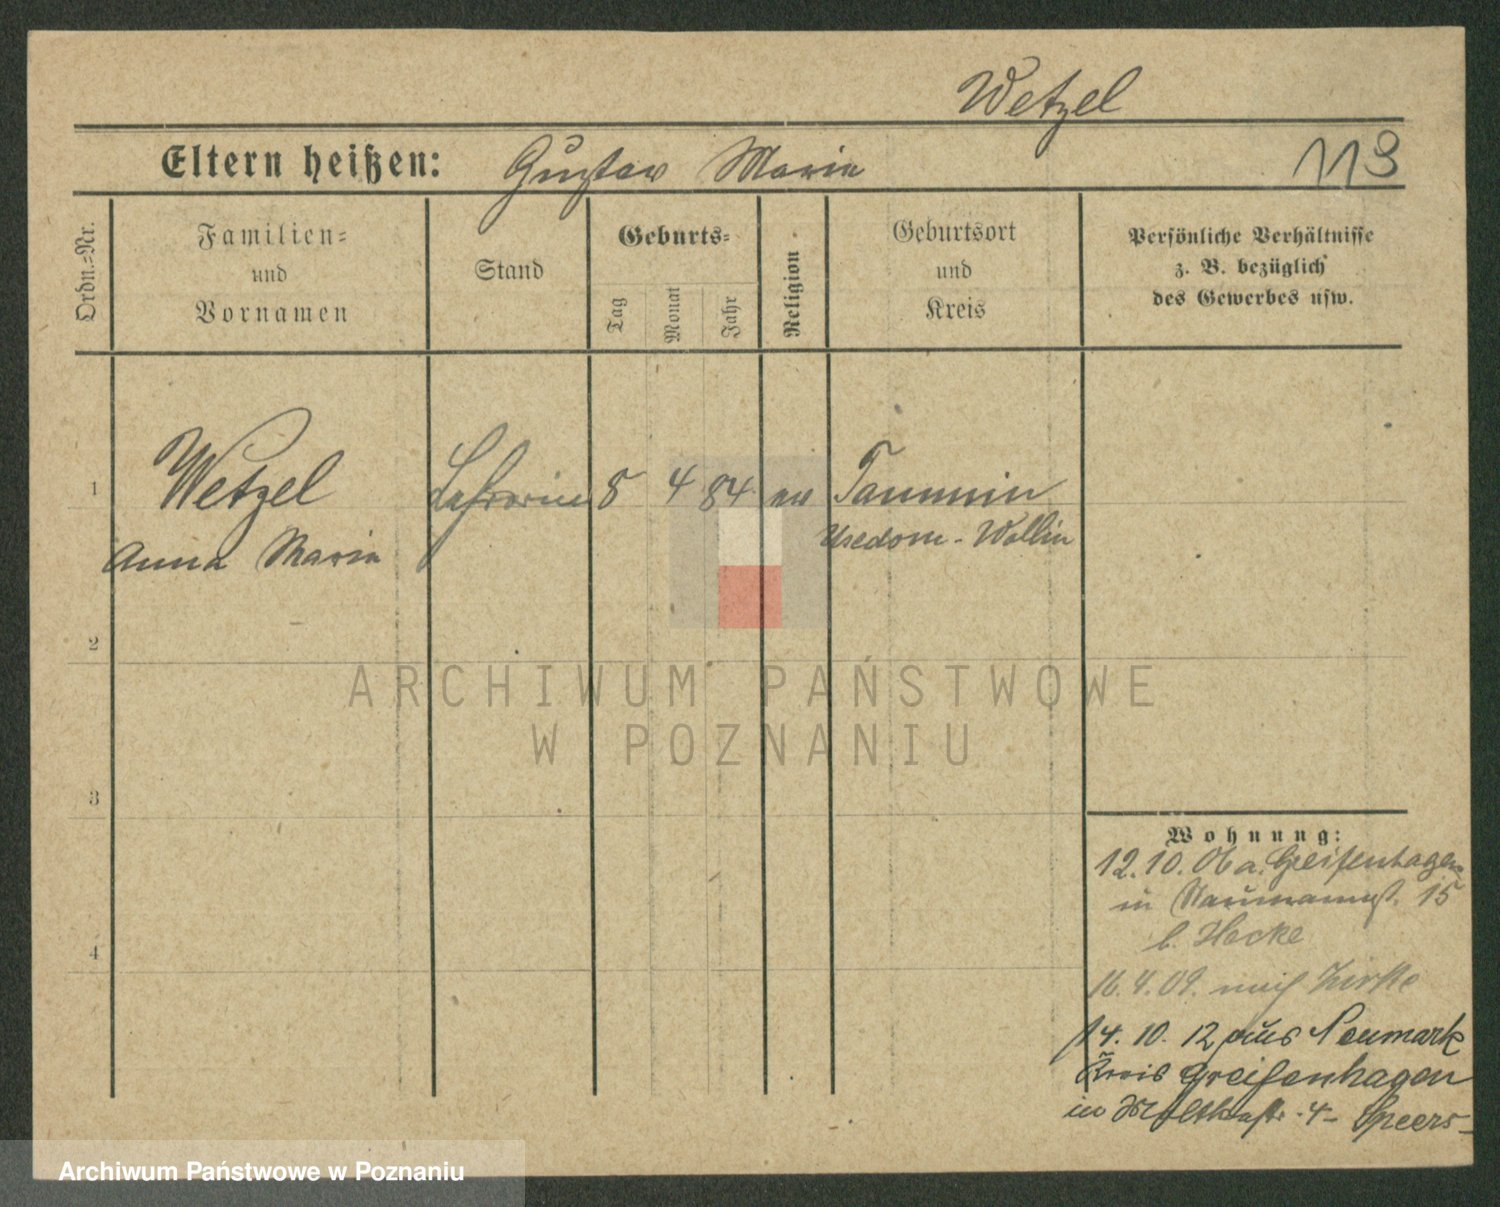 Wetzel
Eltern heißen: Gustav Maria
113
Ordn.-Nr.
Familien-
und
Vornamen
Stand
Geburts-
Tag
Monat
Jahr
Religion
Geburtsort
und
Kreis
Persönliche Verhältnisse
z. B. bezüglich
des Gewerbes usw.
1 Wetzel Lehrerin 8 4 84 ev Tammin
Anna Maria Usedom-Wollin
2
3
4
Wohnung:
12.10.06 a. Greifenhagen
in Naumannst. 15
b. Hacke
16.4.09. nach Zirke
14.10.12 aus Neumark
Kreis Greifenhagen
in Moltkestr. 4 - Speers-
ARCHIWUM PAŃSTWOWE
W POZNANIU
Archiwum Państwowe w Poznaniu